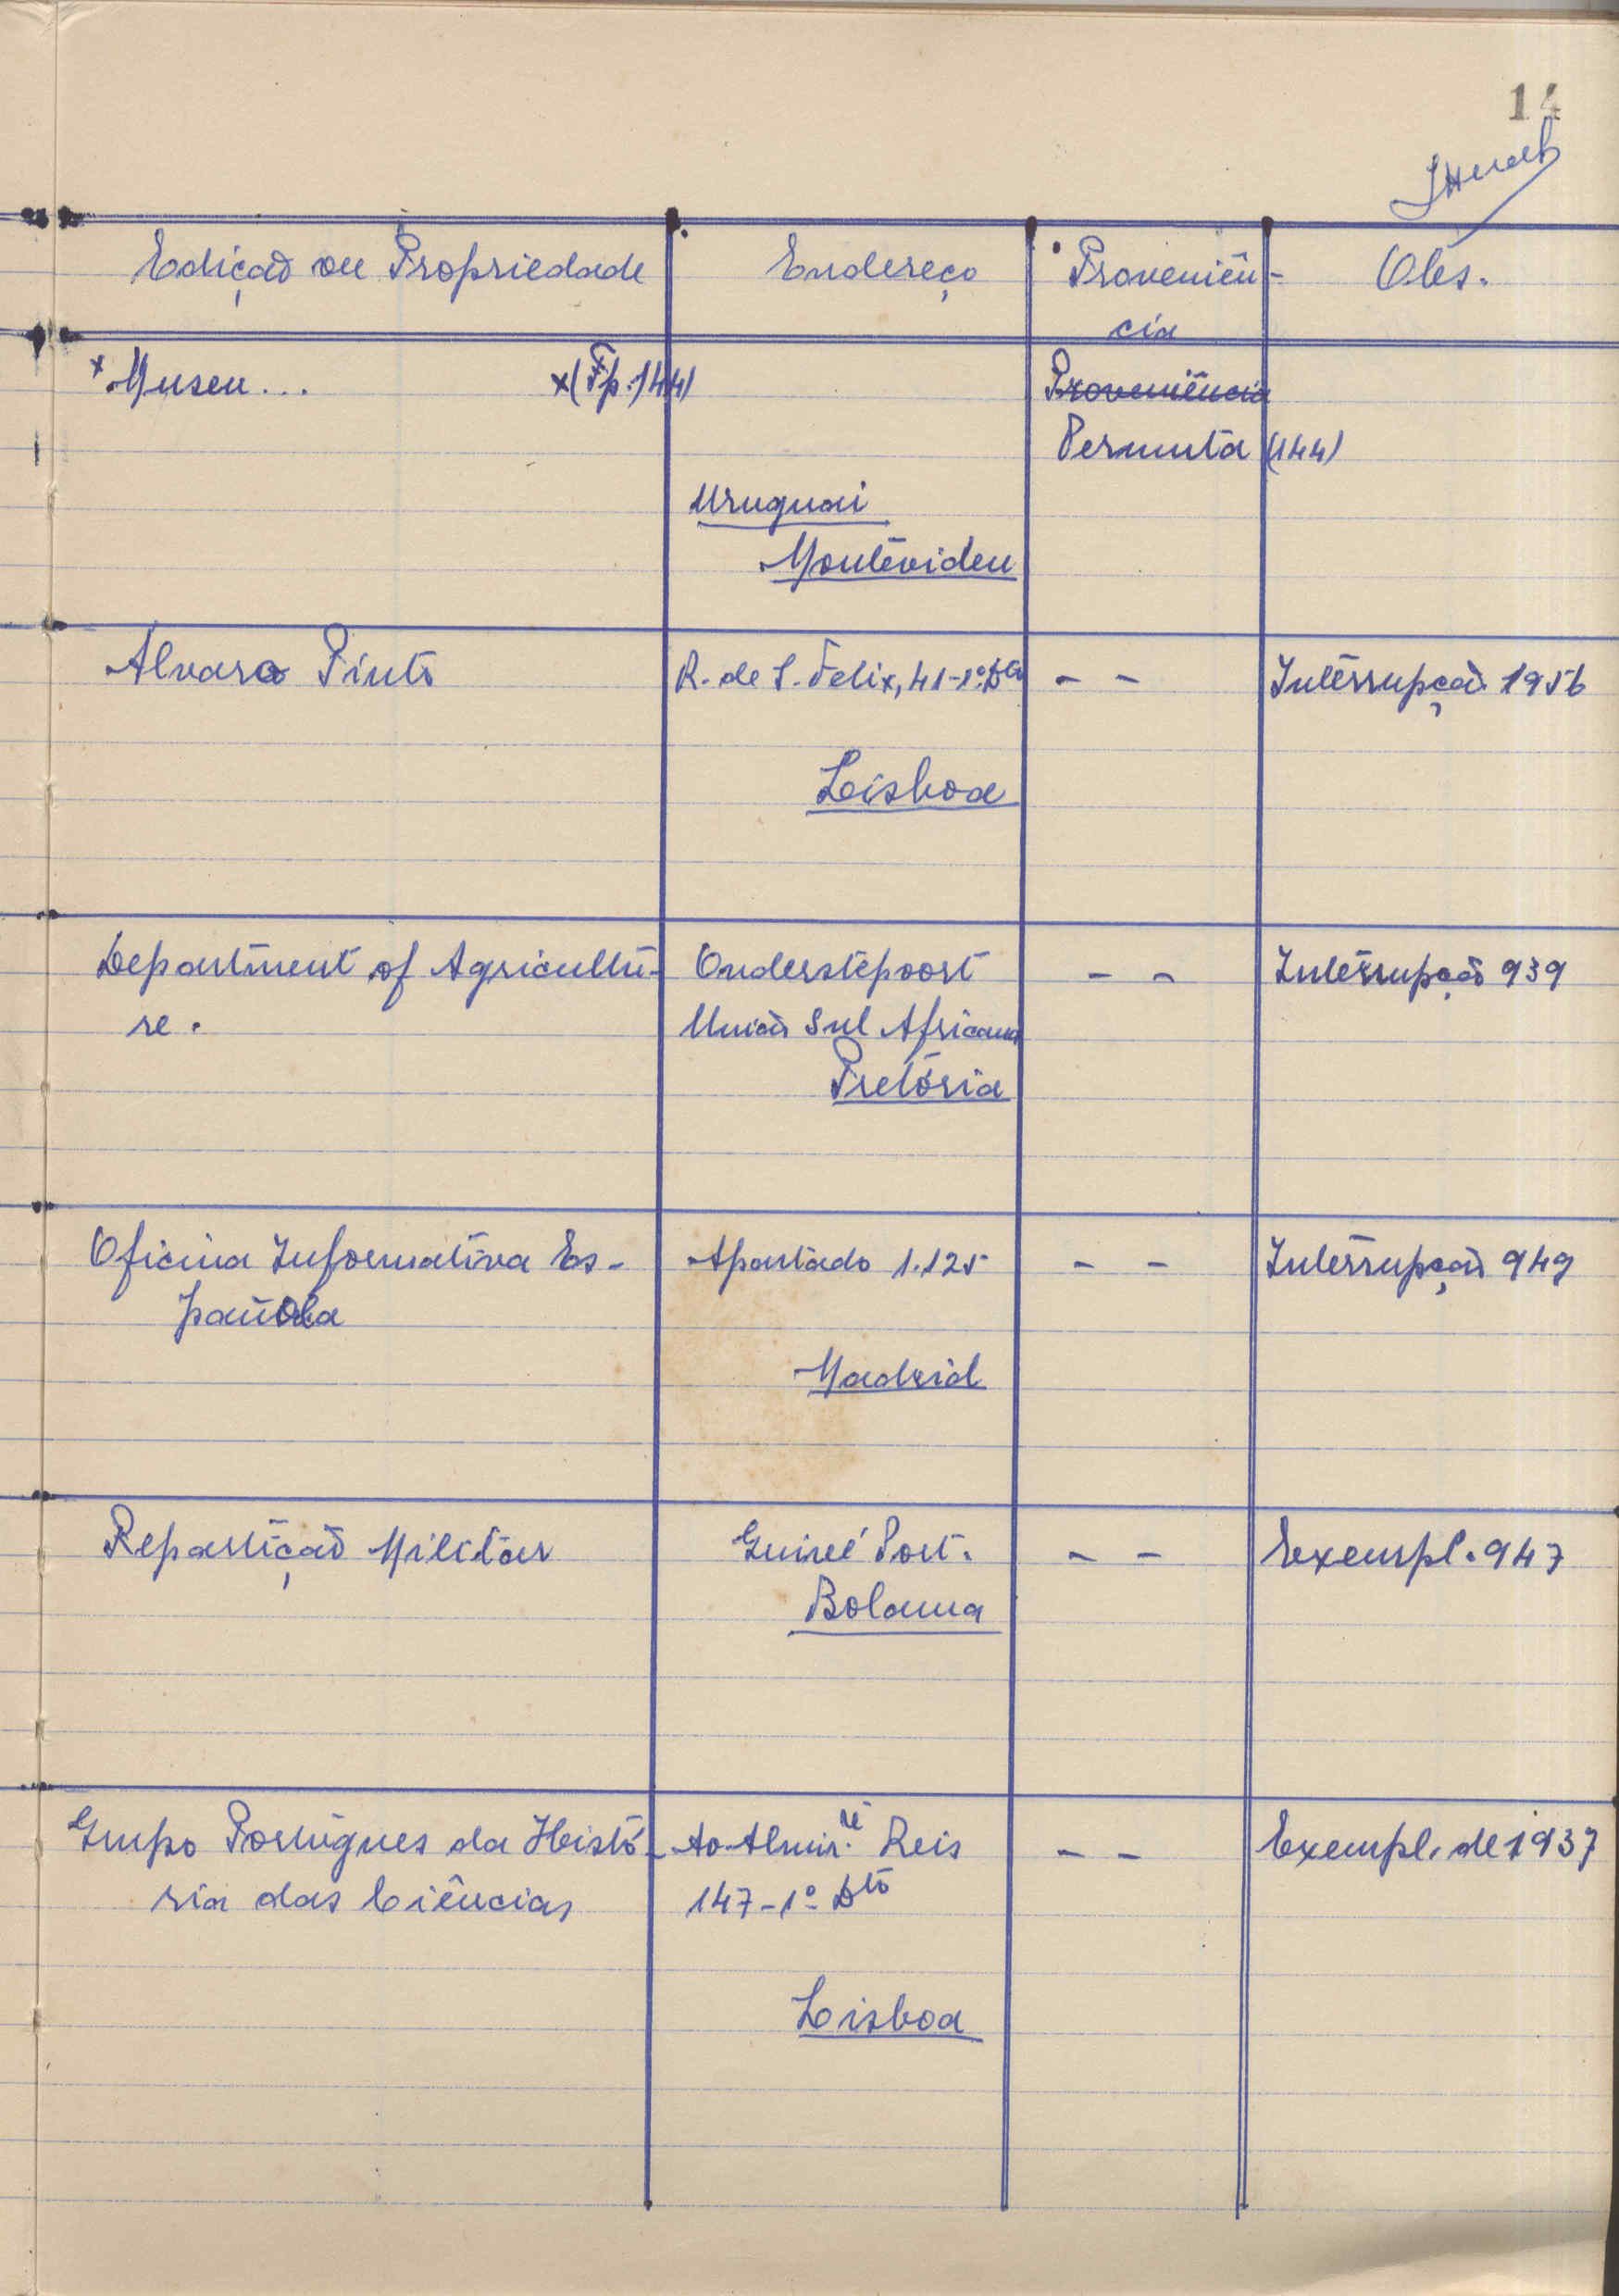 14
Edição ou Propriedade Endereço Proveniên- Obs.
cia
x Museu... x (Fp. 144) Proveniência
Permuta (144)
Uruguai
Montevideu
Alvaro Pinto R. de S. Felix, 41-1º Dto - - Interrupção 1956
Lisboa
Department of Agricultu- Onderstepoort - - Interrupção 939
re. União Sul Africana
Pretória
Oficina Informativa Es- Apartado 1.125 - - Interrupção 949
pañola
Madrid
Repartição Militar Guiné Port. - - Exempl. 947
Bolama
Grupo Português da Histó- Av. Almir.te Reis - - Exempl. de 1937
ria das Ciências 147-1º Dto
Lisboa